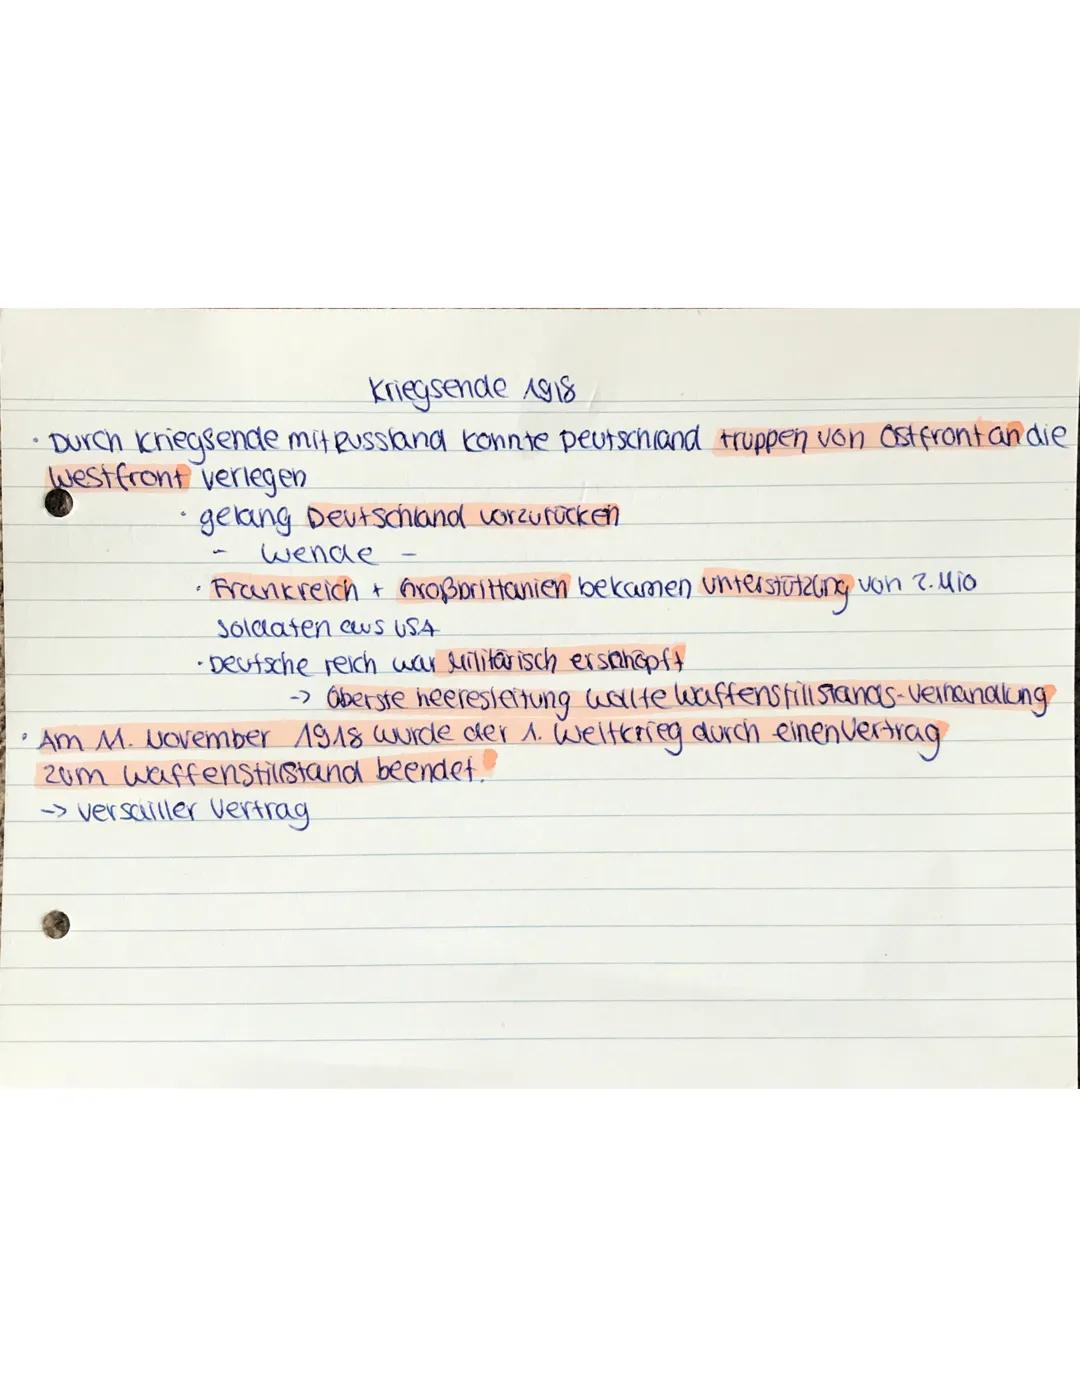 Kriegsende 1918
· Durch Kriegsende mit Russland konnte Deutschland truppen von Ostfront an die
Westfront verlegen
· gelang Deutschland vorzurücken
- Wende -
· Frankreich + Großbrittanien bekamen unterstützung von 2. Mio
Soldaten aus USA
· Deutsche reich war Militärisch erschöpft
-> Oberste heeresleitung wollte Waffenstillstands-Verhandlung
· Am 11. November 1918 wurde der 1. Weltkrieg durch einen Vertrag
zum Waffenstillstand beendet.
-> Versailler Vertrag